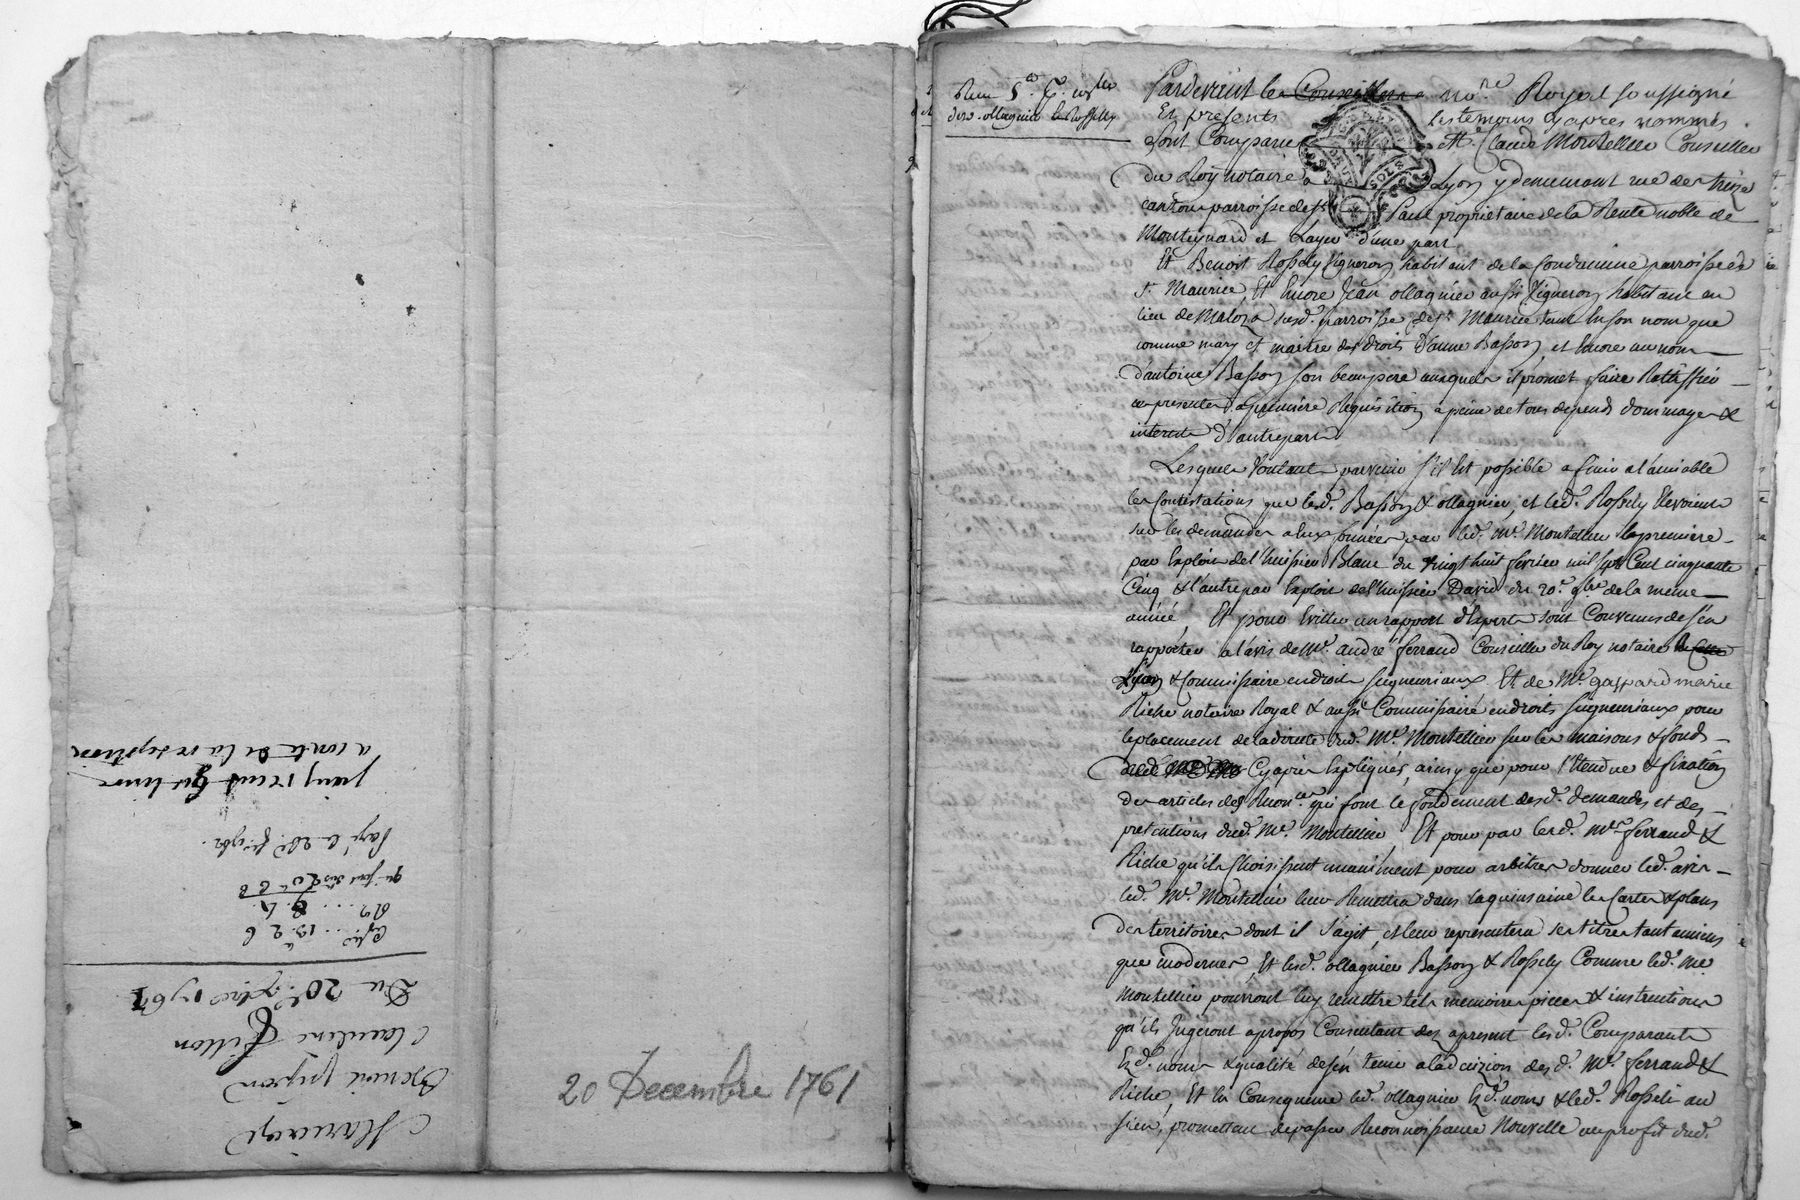 Mariage
Benoit pizon
Claudine Fillon
Du 20e. xbre 1761
13. 2 6
20 6 8
Payé le 28
a conte de la reception
20 Decembre 1761
Pardevant les Conseillers nore. Royal soussigné
Et presents les temoins cy apres nommés.
Sont Comparus Me. Claude Montellier Conseiller
du Roy notaire a Lyon y demeurant rue des treize
cantons parroisse de St. Paul proprietaire de la Rente noble de
Monteynard et Layer d'une part
Et Benoit Rossely vigneron habitant de la Condamine parroisse de
St. Maurice, Et Encore Jean ollagnier aussi vigneron habitant au
lieu de Maloza susd. parroisse de St. Maurice tant En son nom que
comme mary et maitre des droits d'anne Basson, et Encore au nom
d'antoine Basson son beaupere auxquels il promet faire Rattiffier
ces presentes a premiere Requisition a peine de tous depends dommages &
interets d'autre part
Lesquels voulants parvenir s'il Est possible a finir a l'amiable
les Contestations que lesd. Basson & ollagnier, et led. Rossely Elevoient
sur les demandes a Eux formées par led. Me. Montellier la premiere
par Exploit de l'huissier Blanc du vingt huit fevrier mil sept Cent cinquante
Cinq & l'autre par Exploit de l'huissier David du 20e. 9bre de la meme
année, Et pour Eviter un rapport d'Experts sont Convenus de s'en
rapporter a l'avis de Me. andré ferrand Conseiller du Roy notaire
Lyon & Commissaire en droits seigneuriaux. Et de Me. gaspard marie
Riche notaire Royal & aussi Commissaire en droits seigneuriaux pour
le placement de la directe dud. Me. Montellier sur les maisons & fonds
Cy après Expliqués, ainsy que pour l'Etendue & fixation
des articles des Reconces. qui font le fondement desd. demandes et des
pretentions dud. Me. Montellier, Et pour par lesd. Mes ferrand &
Riche qu'ils Choisissent unanimement pour arbitres donner led. avis
led. Me. Montellier leur Remettra dans la quinsaine les Cartes & plans
des territoires dont il s'agit, et leur representera ses titres tant anciens
que modernes, Et lesd. ollagnier Basson & Rossely Comme led. Me
Montellier pourront luy remettre tels memoires pieces & instructions
qu'ils Jugeront apropos Consentant dez apresent lesd. Comparants
Ezd. noms & qualité de s'en tenir a la decizion desd. Mes. ferrand &
Riche, Et En Consequence led. ollagnier Ezd. noms & led. Rosseli au
sien, promettent de passer Reconnoissance Nouvelle au profit dud.